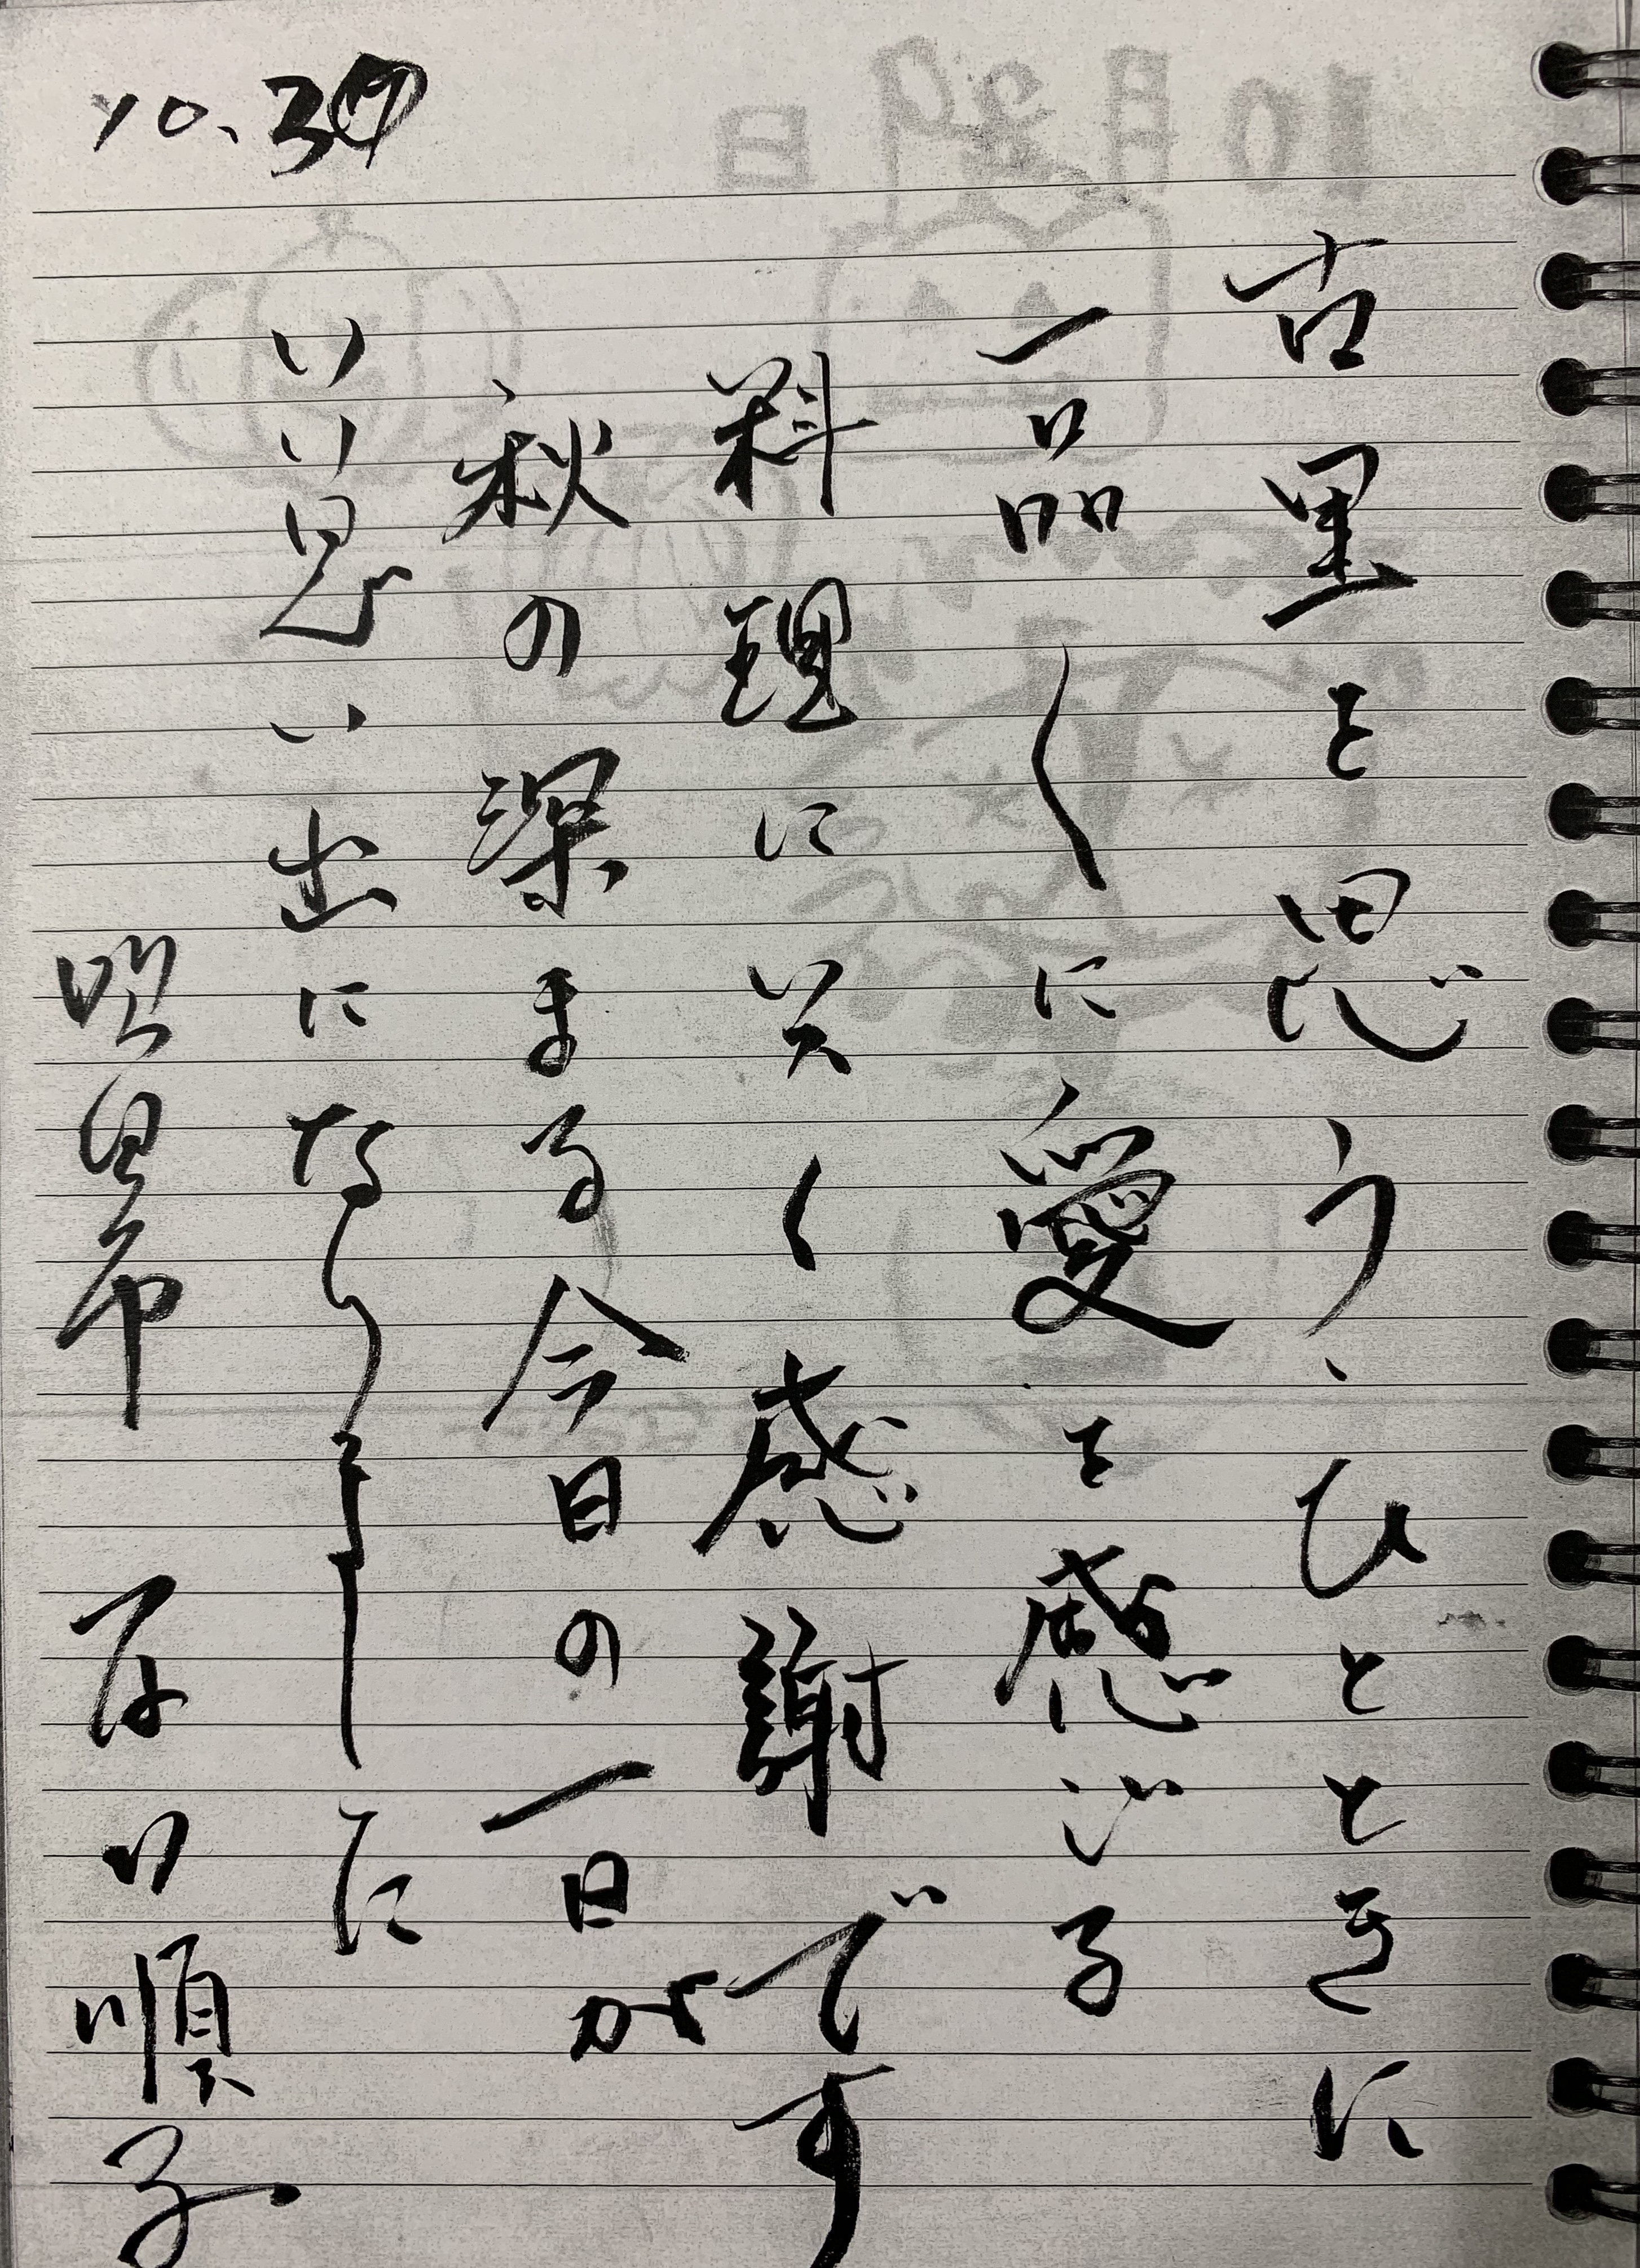 10.30
古里を思う、ひとときに
一品〱に愛を感じる
料理に〱感謝です
秋の深まる今日の一日が
いい思い出になりました
順子